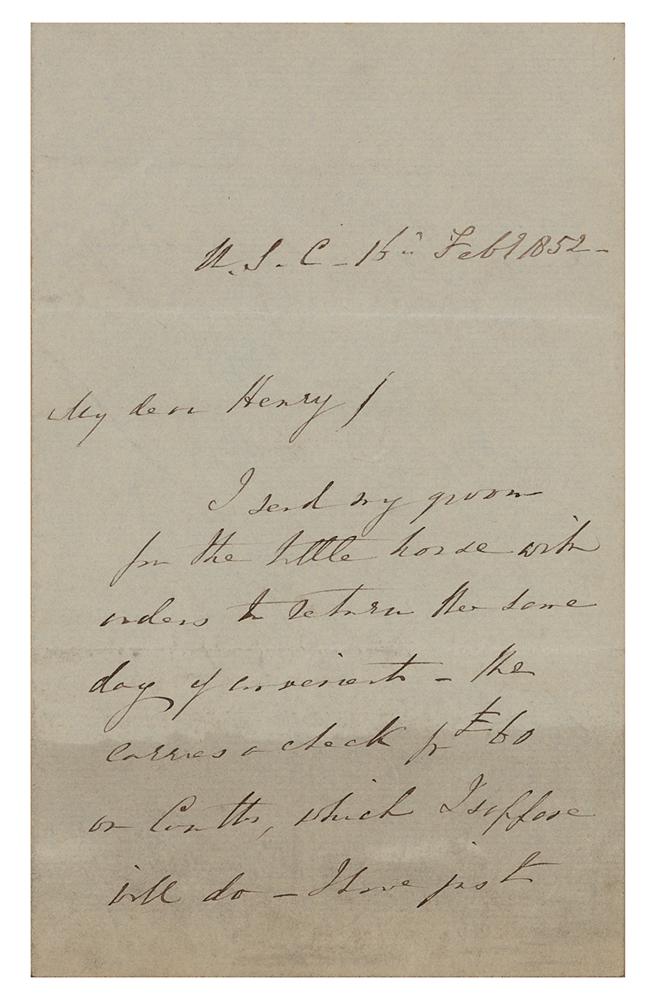 U. S. C - 15th Feby 1852 -
My dear Henry /
I send my groom
for the little horse with
orders to return the same
day if convenient - He
carries a check for £60
on Coutts, which I suppose
will do - I have just